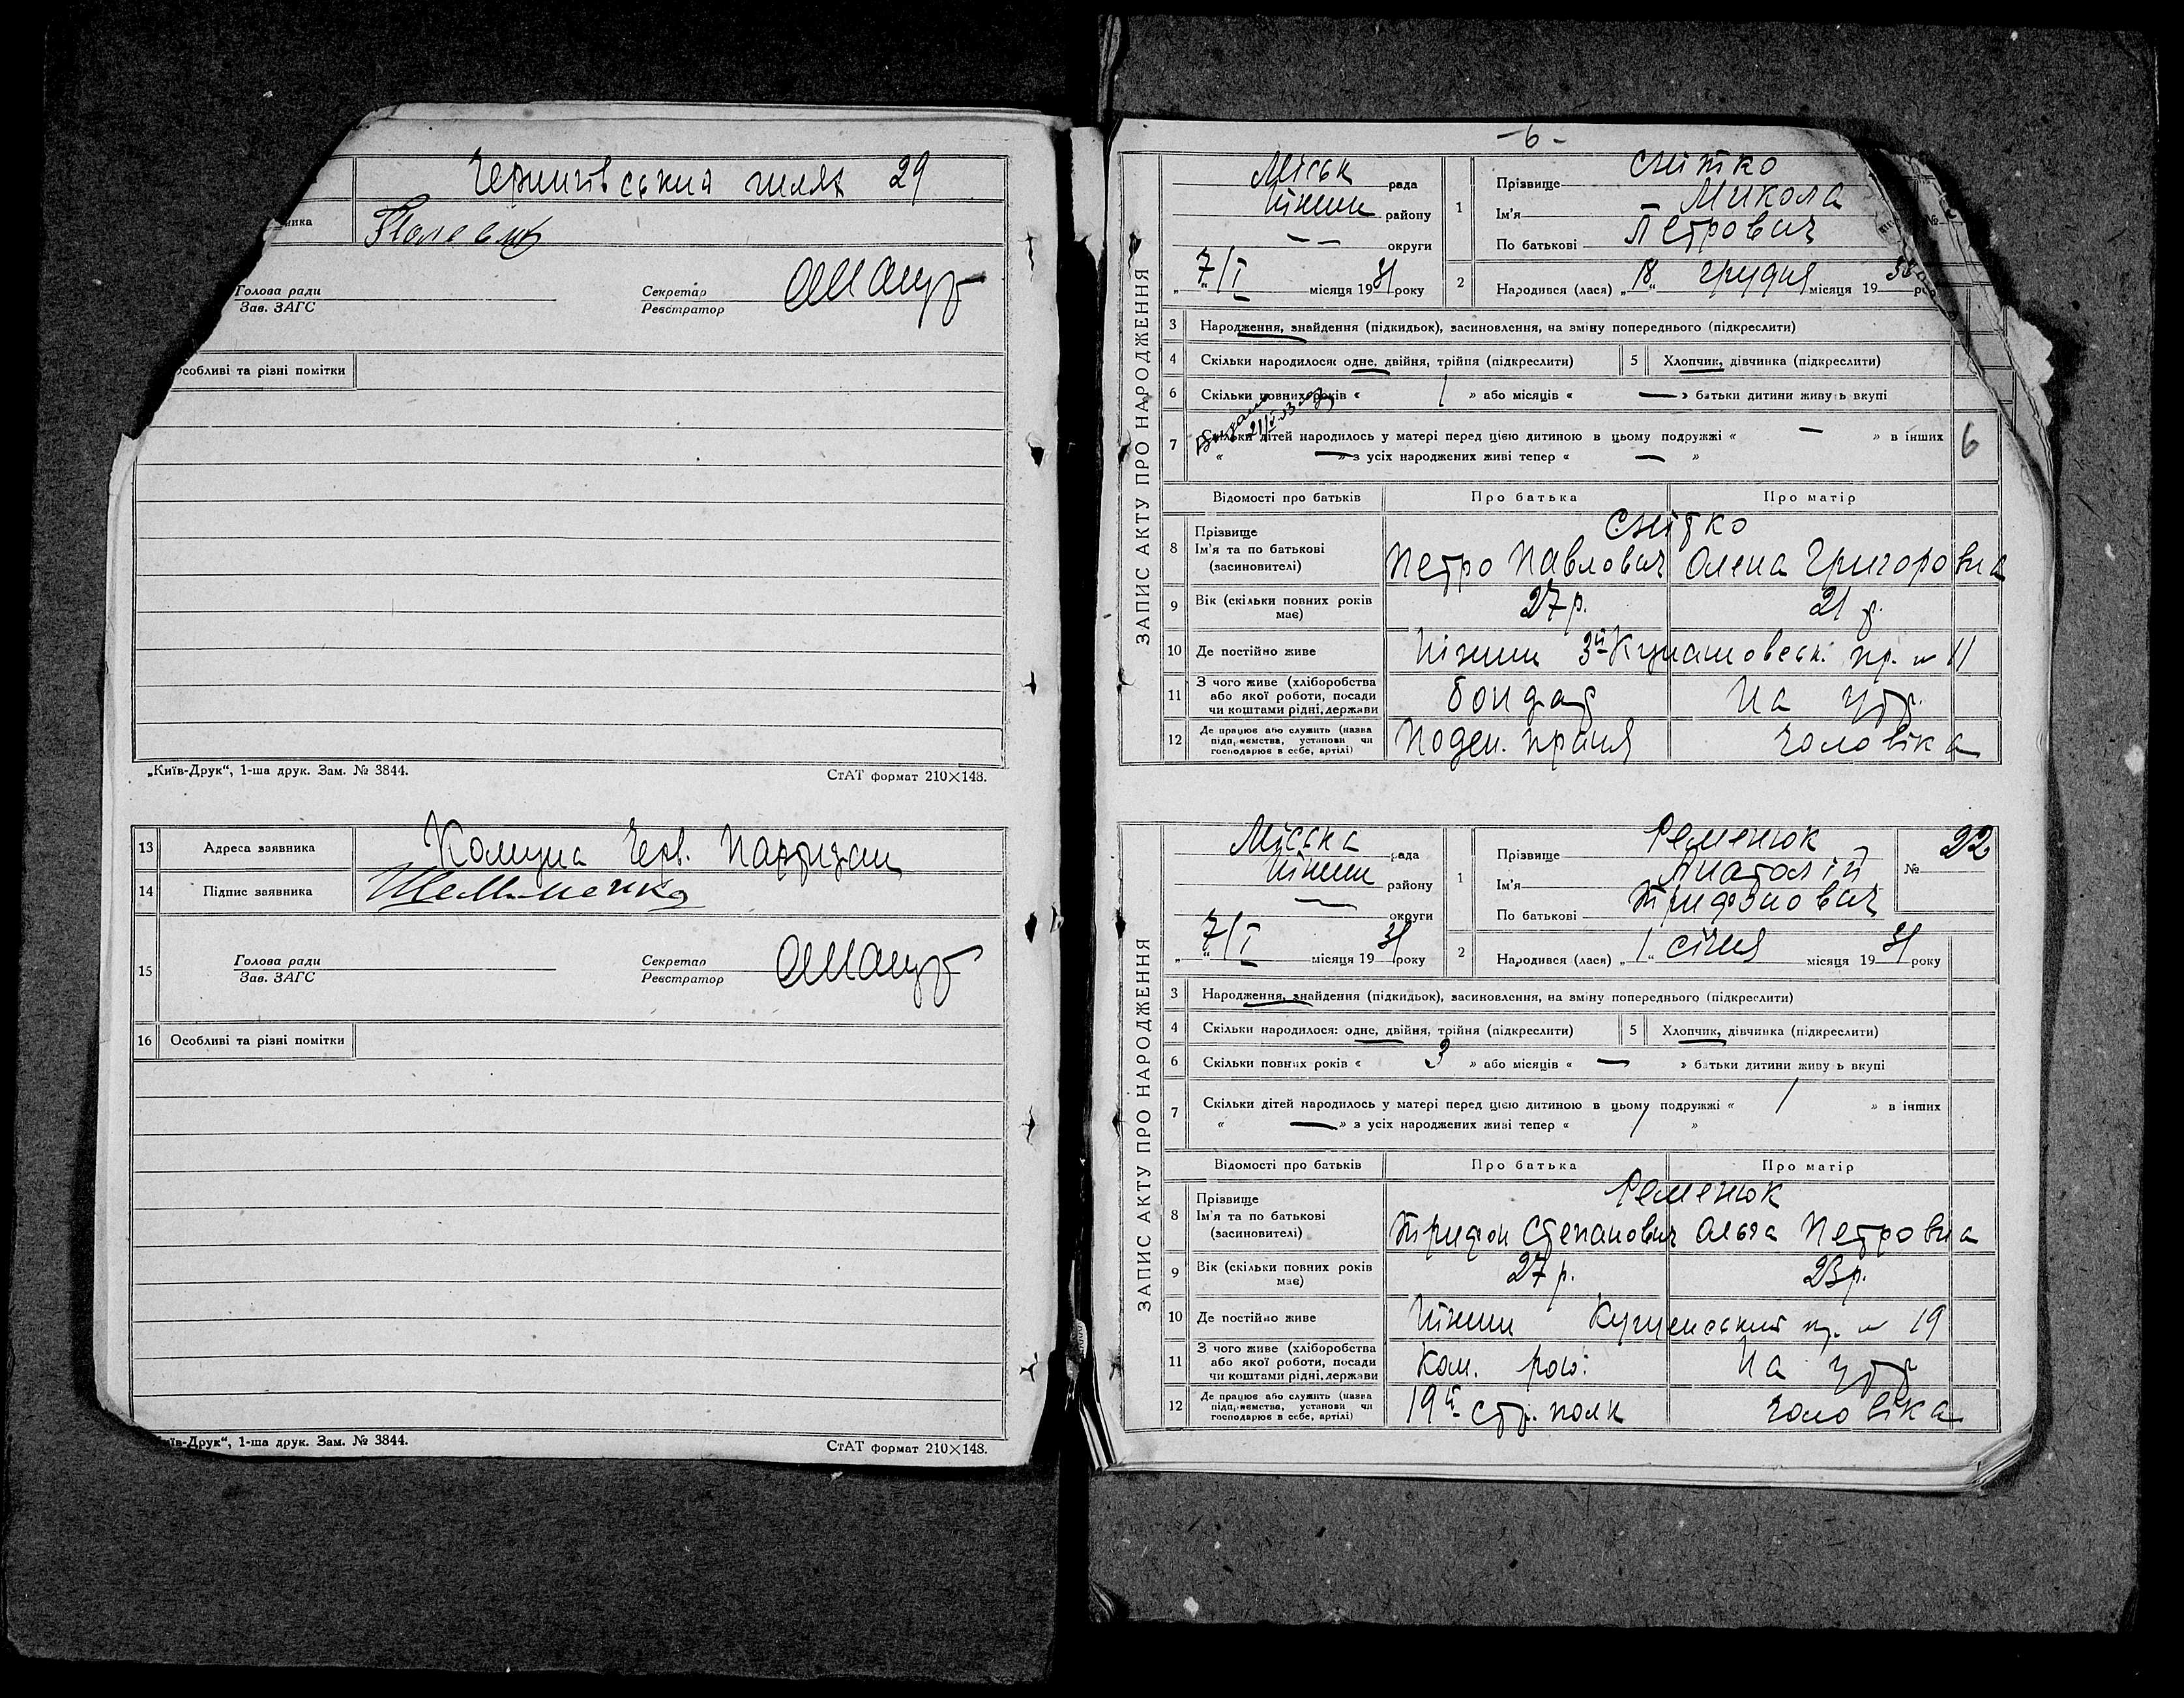 Чернигівський шлях 29
ника
Голова ради
Зав. ЗАГС
Секретар
Реєстратор
Особливі та різні помітки
„Київ-Друк“, 1-ша друк. Зам. № 3844.
СтАТ формат 210×148.
13 Адреса заявника Комуна Черв. Партизан
14 Підпис заявника
15 Голова ради
Зав. ЗАГС
Секретар
Реєстратор
16 Особливі та різні помітки
„Київ-Друк“, 1-ша друк. Зам. № 3844.
СтАТ формат 210×148.
-6-
ЗАПИС АКТУ ПРО НАРОДЖЕННЯ
Міськ рада
Ніжин району
— — округи
„7/I“ місяця 1931 року
1 Прізвище Снітко
Ім'я Микола
По батькові Петрович
№
2 Народився (лася) „18“ грудня місяця 19
3 Народження, знайдення (підкидьок), засиновлення, на зміну попереднього (підкреслити)
4 Скільки народилося: одне, двійня, трійня (підкреслити)
5 Хлопчик, дівчинка (підкреслити)
6 Скільки повних років « 1 » або місяців « — » батьки дитини живуть вкупі
7 Скільки дітей народилось у матері перед цією дитиною в цьому подружжі « — » в інших
« — » з усіх народжених живі тепер « — »
6
Відомості про батьків Про батька Про матір
8 Прізвище
Ім'я та по батькові
(засиновителі)
Снітко
Петро Павлович Олена Григоровна
9 Вік (скільки повних років має) 27 р. 21 р.
10 Де постійно живе Ніжин 3й пр. № 11
11 З чого живе (хліборобства
або якої роботи, посади
чи коштами рідні, держави
бондар На утр.
12 Де працює або служить (назва
підприємства, установи чи
господарює в себе, артілі)
Поден. праця чоловіка
ЗАПИС АКТУ ПРО НАРОДЖЕННЯ
Міська рада
Ніжин району
— округи
„7/I“ місяця 1931 року
1 Прізвище Ременюк
Ім'я Анатолій
По батькові Трифонович
№ 22
2 Народився (лася) „1“ січня місяця 1931 року
3 Народження, знайдення (підкидьок), засиновлення, на зміну попереднього (підкреслити)
4 Скільки народилося: одне, двійня, трійня (підкреслити)
5 Хлопчик, дівчинка (підкреслити)
6 Скільки повних років « 3 » або місяців « — » батьки дитини живуть вкупі
7 Скільки дітей народилось у матері перед цією дитиною в цьому подружжі « 1 » в інших
« — » з усіх народжених живі тепер « 1 »
Відомості про батьків Про батька Про матір
8 Прізвище
Ім'я та по батькові
(засиновителі)
Ременюк
Трифон Степанович Ольга Петровна
9 Вік (скільки повних років має) 27 р. 23 р.
10 Де постійно живе Ніжин пр. № 19
11 З чого живе (хліборобства
або якої роботи, посади
чи коштами рідні, держави
Ком. На утр
12 Де працює або служить (назва
підприємства, установи чи
господарює в себе, артілі)
19й стр. полк чоловіка